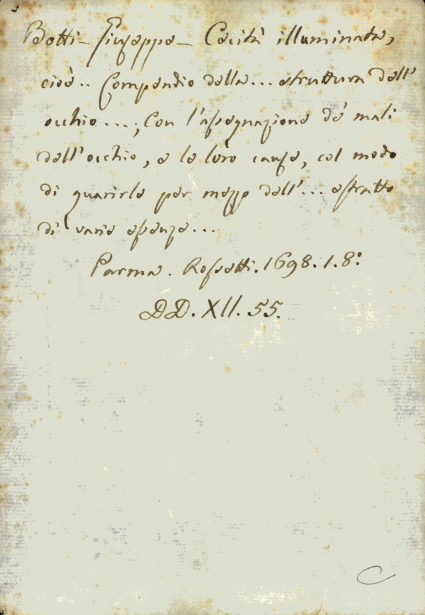 Botti - Giuseppe - Cecità illuminata,
cioè.. Compendio della... struttura dell'
occhio...; Con l'assegnazione de' mali
dell'occhio, e le loro cause, col modo
di guarirle per mezzo dell'... estratto
di varie essenze...
Parma. Rossetti. 1698. 1. 8º
DD. XII. 55.
C